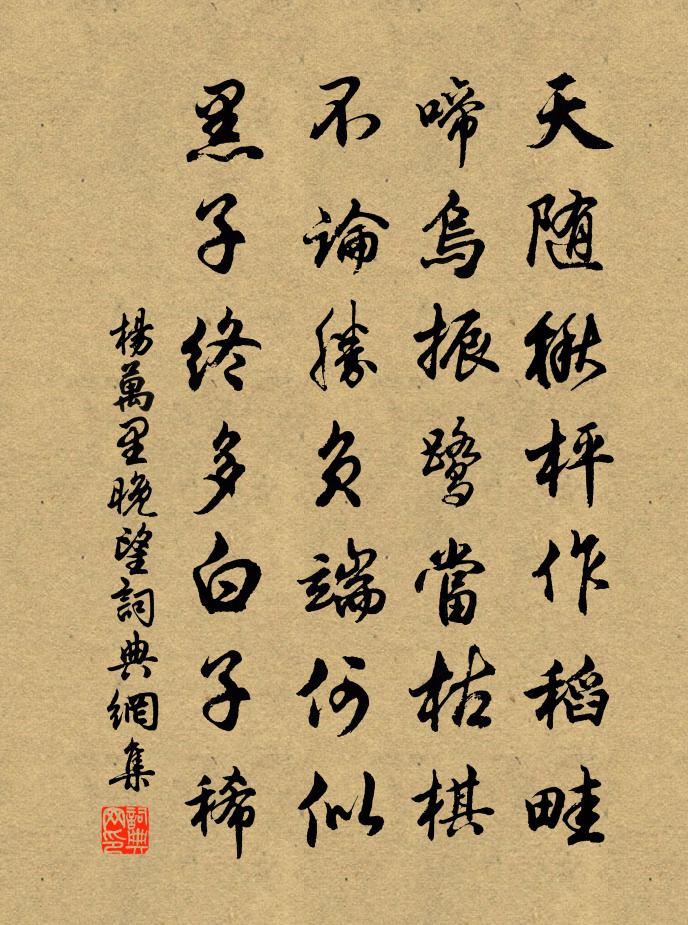 天随楸枰作稻畦
啼烏振鷺當枯棋
不論勝負端何似
黑子終多白子稀
楊萬里晚望詞典網集
詞典網印